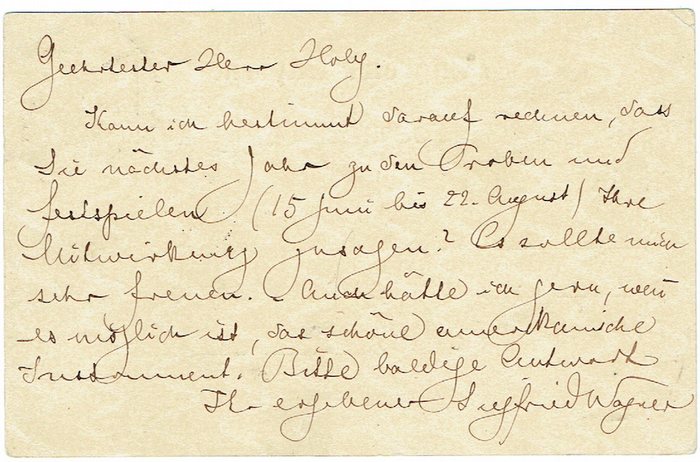 Geehrtester Herr Holy.
Kann ich bestimmt darauf rechnen, dass
Sie nächstes Jahr zu den Proben und
Festspielen (15 Juni bis 22. August) Ihre
Mitwirkung zusagen? Es sollte mich
sehr freuen. Auch hätte ich gern, wenn
es möglich ist, das schöne amerikanische
Instrument. Bitte baldige Antwort
Ihr ergebener Siegfried Wagner